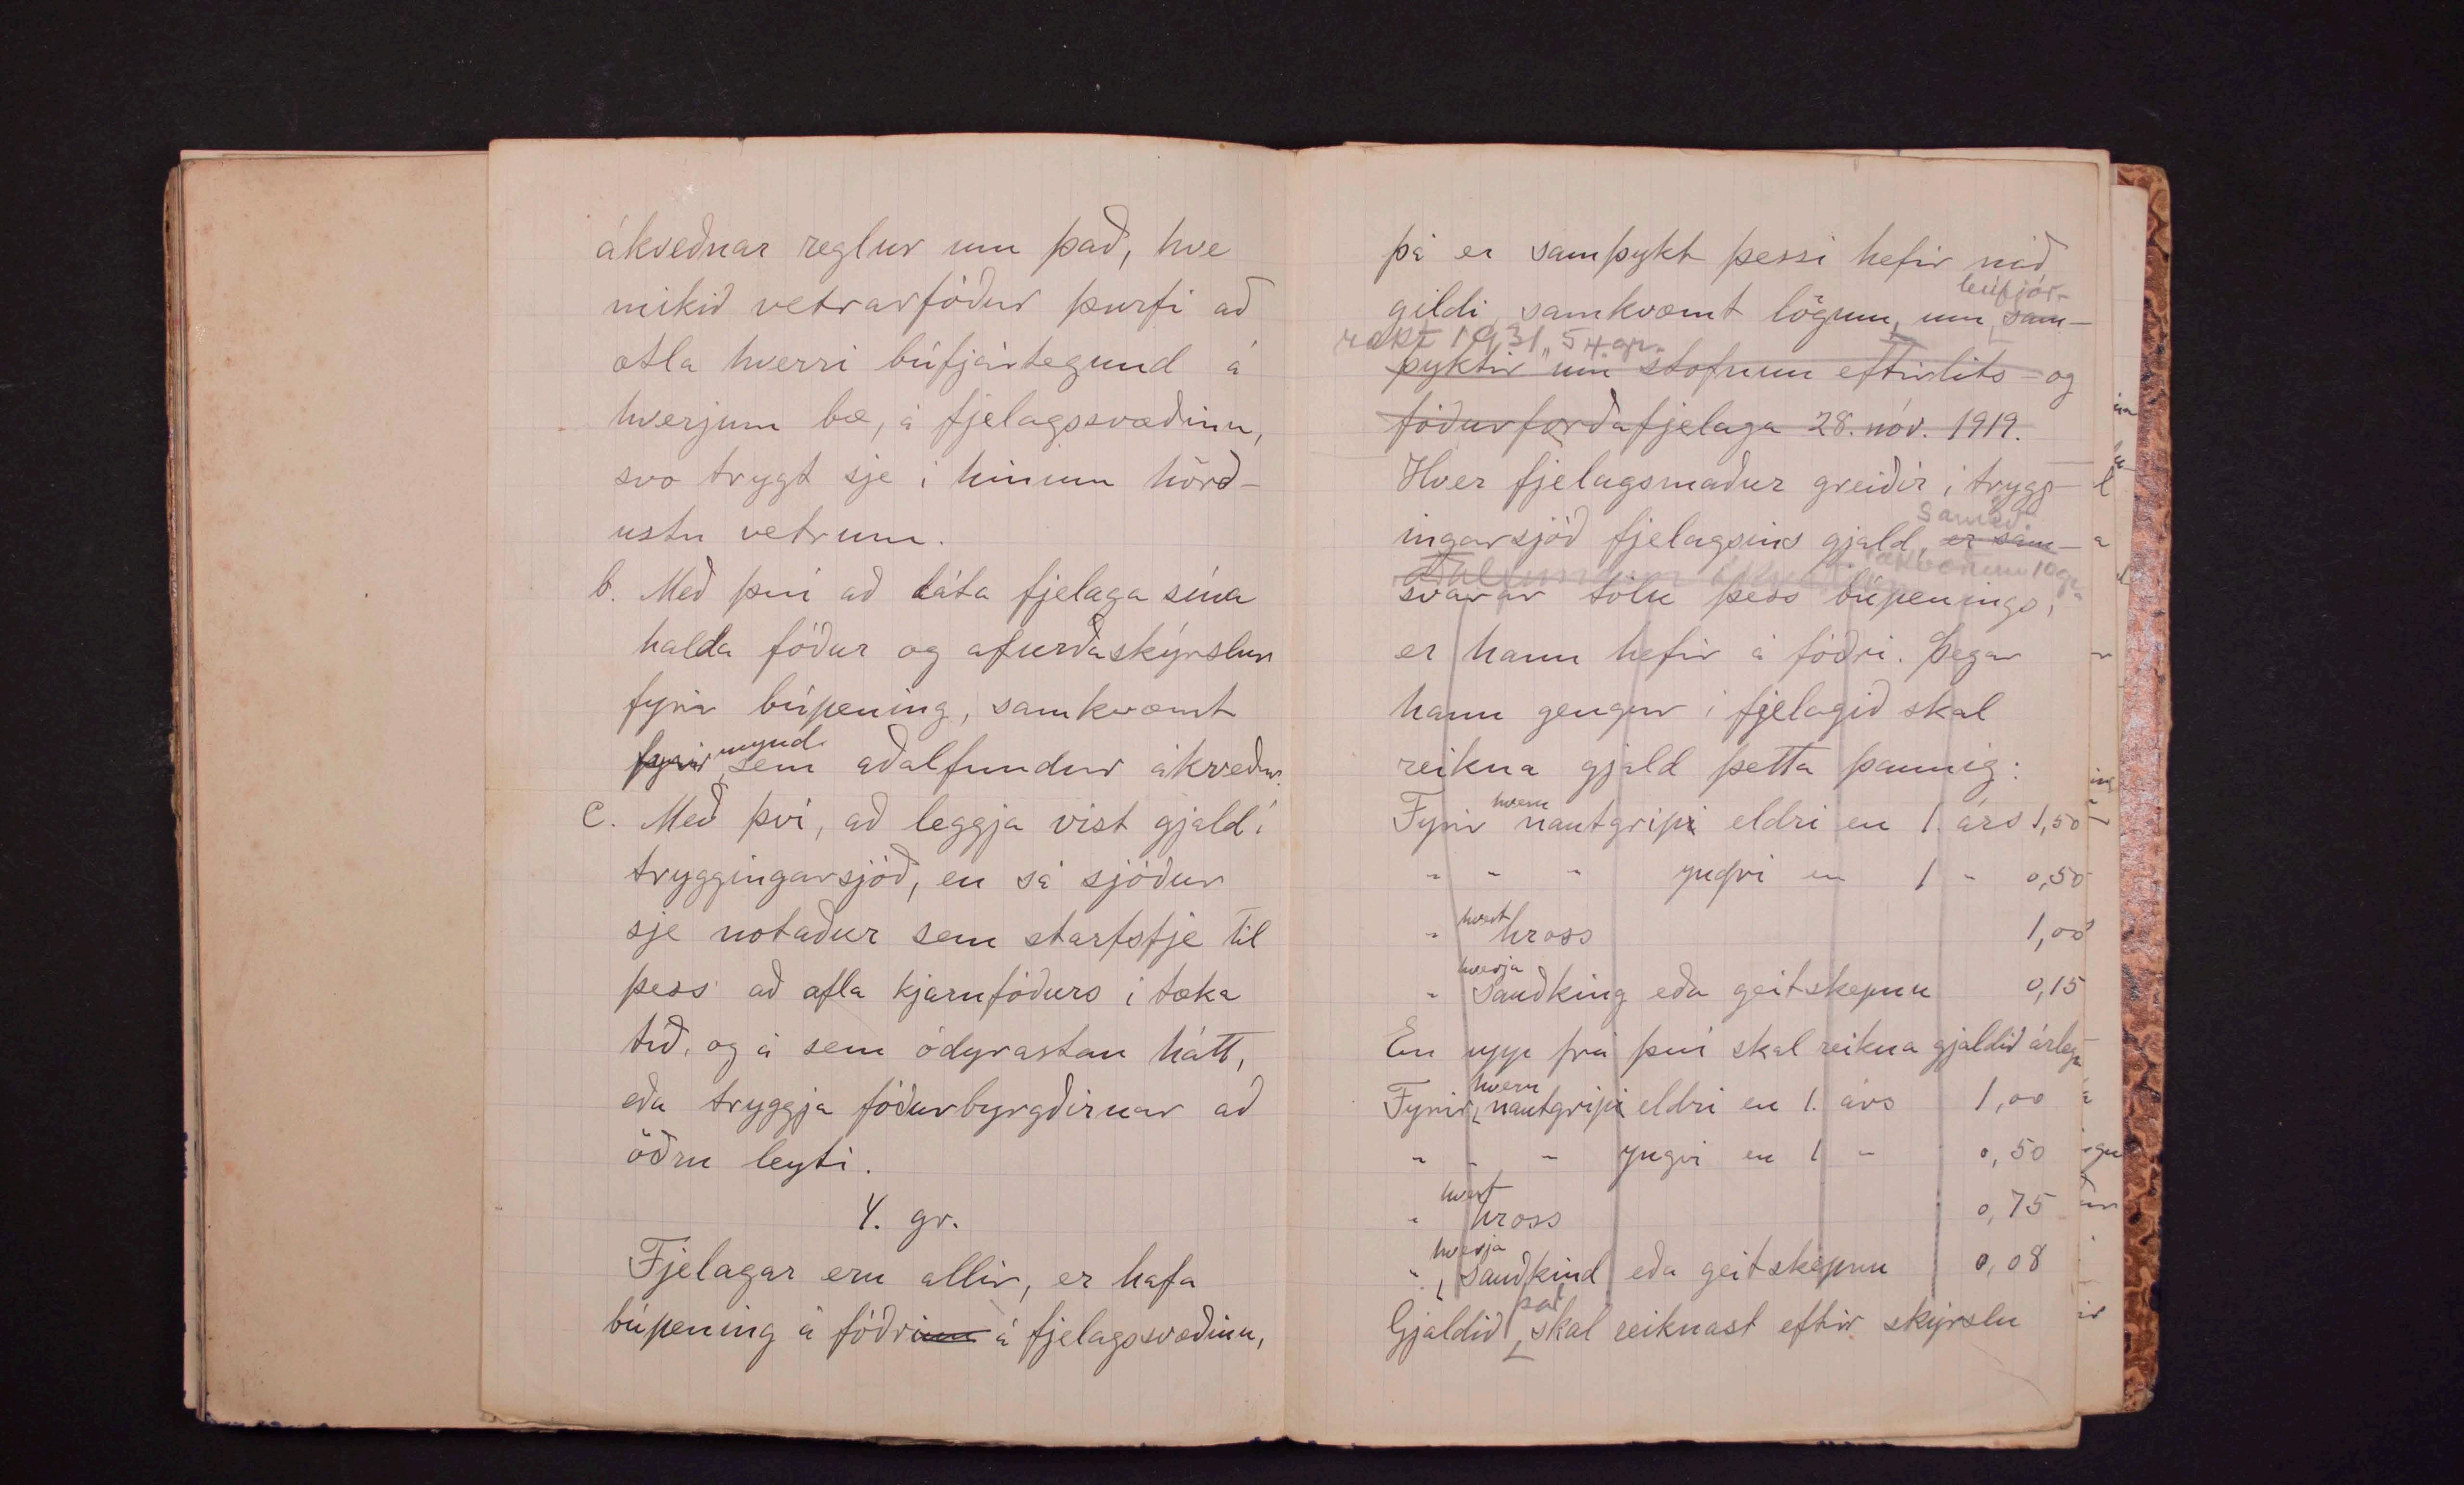 ákveðnar reglur um það, hve
mikið vetrarfóður þurfi að
ætla hverri búfjártegund á
hverjum bæ, á fjelagssvæðinu,
svo trygt sje í hinum hörð-
ustu vetrum.
b. Með því að láta fjelaga sína
halda fóður og afurðaskýrslur
fyrir búpening, samkvæmt
fyrir mynd sem aðalfundur ákveður.
c. Með því, að leggja vist gjald í
tryggingarsjóð, en sá sjóður
sje notaður sem starfsfje til
þess að afla kjarnfóðurs í tæka
tíð, og á sem ódyrastan hátt,
eða tryggja fóðurbyrgðirnar að
öðru leyti.
4. gr.
Fjelagar eru allir, er hafa
búpening á fóðrinu á fjelagssvæðinu,
þá er samþykt þessi hefir náð
búfjár-
gildi samkvæmt lögum, um sam-
rækt 1931, 54 gr.
þyktir um stofnun eftirlits- og
fóðurforðafjelaga 28. nóv. 1919.
Hver fjelagsmaður greiðir í trygg-
ingarsjóð fjelagsins gjald, er sam-
ákvæðum 10 gr.
svarar tölu þess búpenings,
er hann hefir á fóðri. Þegar
hann gengur í fjelagið skal
reikna gjald þetta þannig:
Fyrir hvern nautgripi eldri en 1. árs 1,50
" " " yngri en 1 " 0,50
" hvert hross 1,00
" hverja sauðking eða geitskepnu 0,15
En upp frá því skal reikna gjaldið árlega
Fyrir hvern nautgripi eldri en 1. árs 1,00
" " " yngri en 1 " 0,50
" hvert hross 0,75
" hverja sauðkind eða geitskepnu 0,08
Gjaldið skal reiknast eftir skýrslu